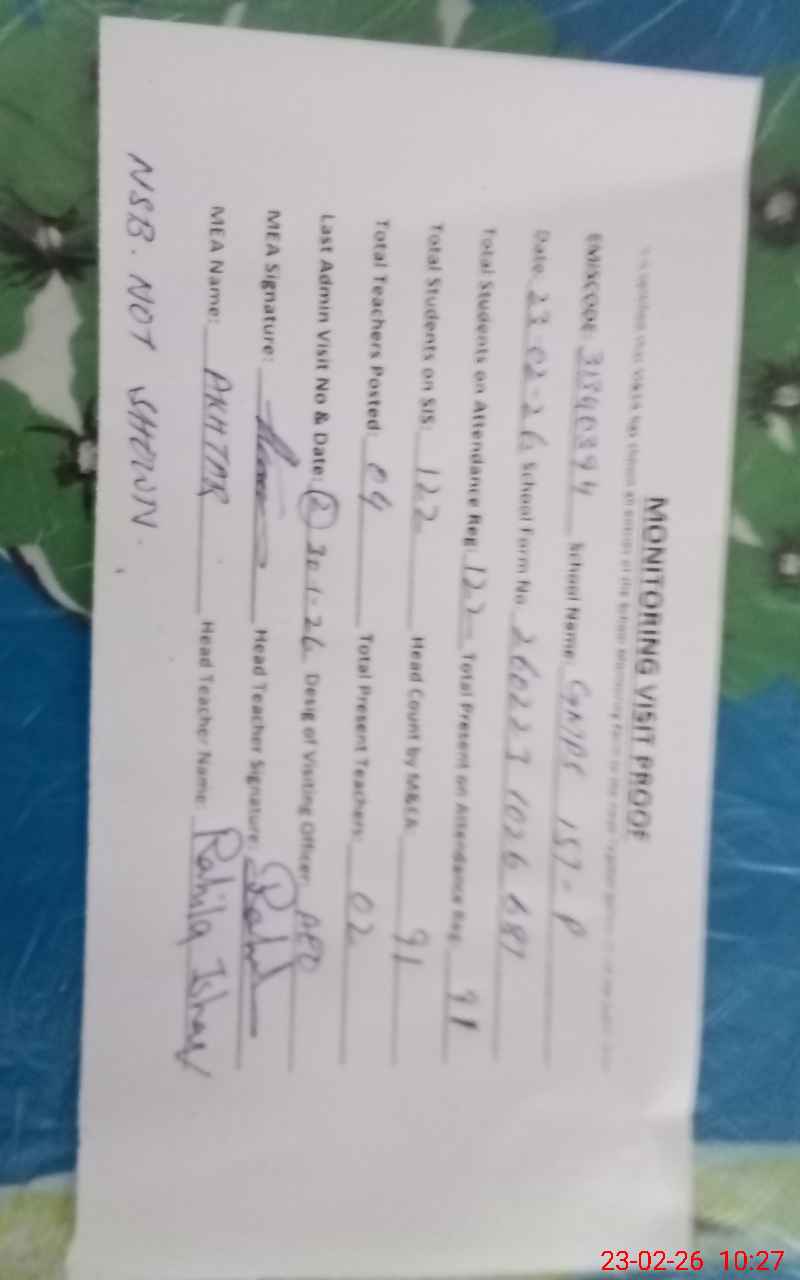 MONITORING VISIT PROOF
EMISCODE: 31840394 School Name: GMPS 157-P
Date 23-02-26 School Form No. 260223 1026 687
Total Students on Attendance Reg: 122 Total Present on Attendance Reg. 91
Total Students on SIS: 122 Head Count by M&EA: 91
Total Teachers Posted: 04 Total Present Teachers: 02
Last Admin Visit No & Date: 2 30-1-26 Desig of Visiting Officer: AEO
MEA Signature: Head Teacher Signature:
MEA Name: AKHTAR Head Teacher Name: Rahila
NSB. NOT SHOWN.
23-02-26 10:27